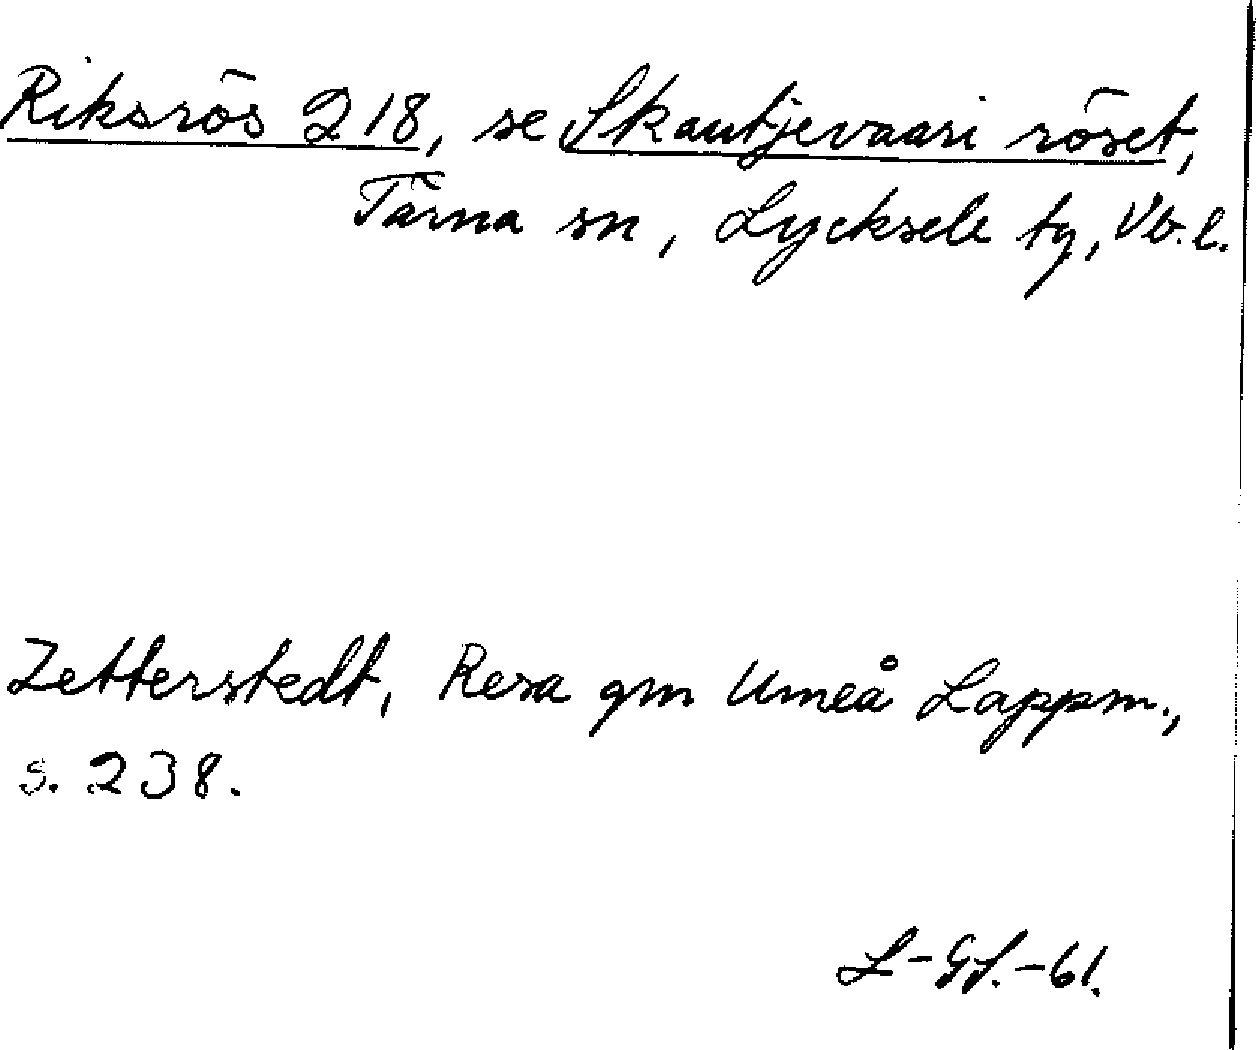 Riksrös 218, se Skautjevaari röset,
Tärna sn, Lycksele tg, Vb. l.
Zetterstedt, Resa gm Umeå Lappm.,
s. 238.
L-GS.-61.